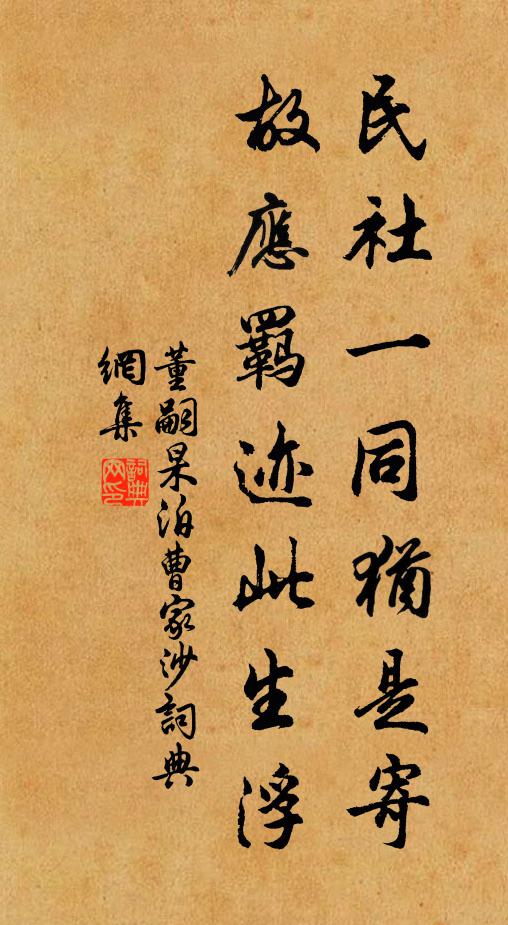 民社一同猶是寄
故應羈迹此生浮
董嗣杲泊曹家沙詞典
網集
詞典
网印